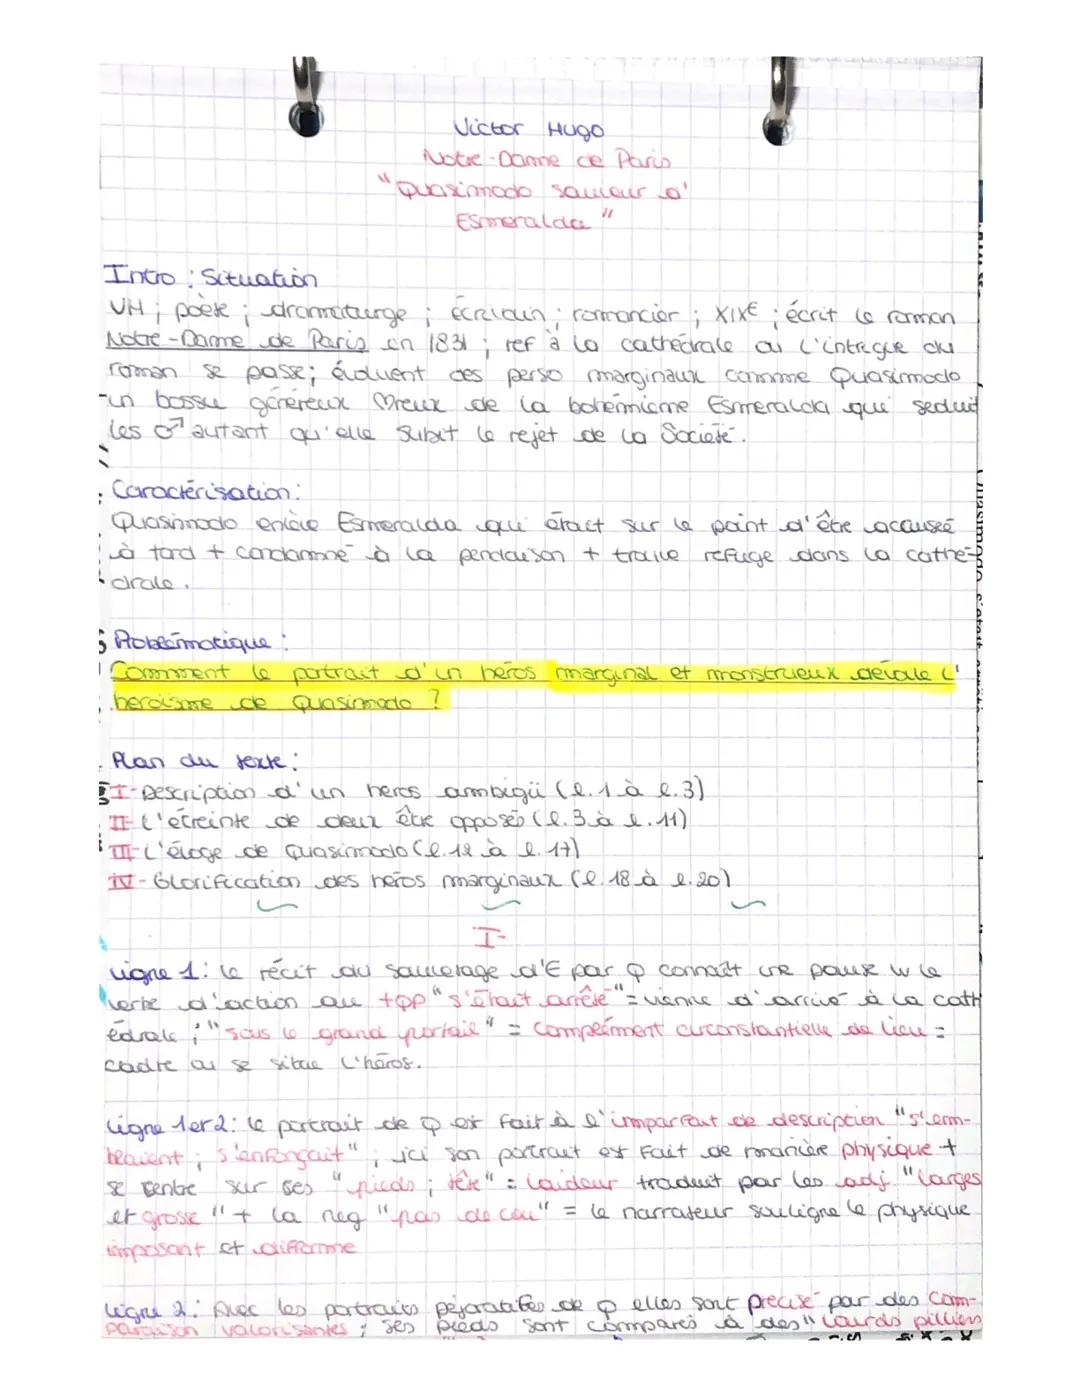 Victor Hugo
Notre-Dame de Paris
"Quasimodo sauveur d'
Esmeralda"
Intro : Situation
VH ; poète ; dramaturge ; écrivain ; romancier ; XIXE ; écrit le roman
Notre-Dame de Paris en 1831 ; ref à la cathédrale où l'intrigue du
roman se passe; évoluent des perso marginaux comme Quasimodo
un bossu généreux de la bohémienne Esmeralda qui seduit
les ♂ autant qu'elle subit le rejet de la Société.
Caractérisation :
Quasimodo enlève Esmeralda qui était sur le point d'être accusée
à tord + condamné à la pendaison + trouve refuge dans la cathé-
drale.
Problématique :
Comment le portrait d'un héros marginal et monstrueux dévoile l'
heroïsme de Quasimodo ?
Plan du texte :
I- Description d'un heros ambigüi (l.1 à l.3)
II- L'étreinte de deux être opposés (l.3 à l.11)
III- L'éloge de Quasimodo (l.12 à l.17)
IV- Glorification des héros marginaux (l.18 à l.20)
I-
Ligne 1 : le récit du sauvetage d'E par Q connaît une pause w le
verbe d'action au +qp "s'était arrêté" = vienne d'arrivé à la cath
édrale ; "sous le grand portail" = complément circonstantielle de lieu =
cadre où se situe l'héros.
Ligne 1 et 2 : le portrait de Q est fait à l'imparfait de description "s'em-
blaient ; s'enfonçait" ; ici son portrait est fait de manière physique +
se centre sur ses "pieds ; tête" = laideur traduit par les adj "larges
et grosse" + la neg "pas de cou" = le narrateur souligne le physique
imposant et difforme
Ligne 2 : Avec les portraits péjoratifes de Q elles sont precisé par des com-
paraison valorisantes ; ses pieds sont comparés à des "lourds pilliers